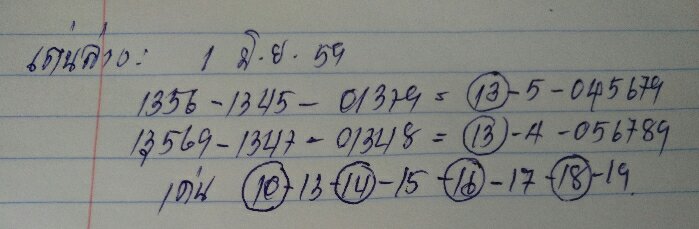 เด่นล่าง: 1 มิ.ย. 59
1356 - 1345 - 01379 = 13 - 5 - 045679
13569 - 1347 - 01348 = 13 - 4 - 056789
เด่น 10 - 13 - 14 - 15 - 16 - 17 - 18 - 19